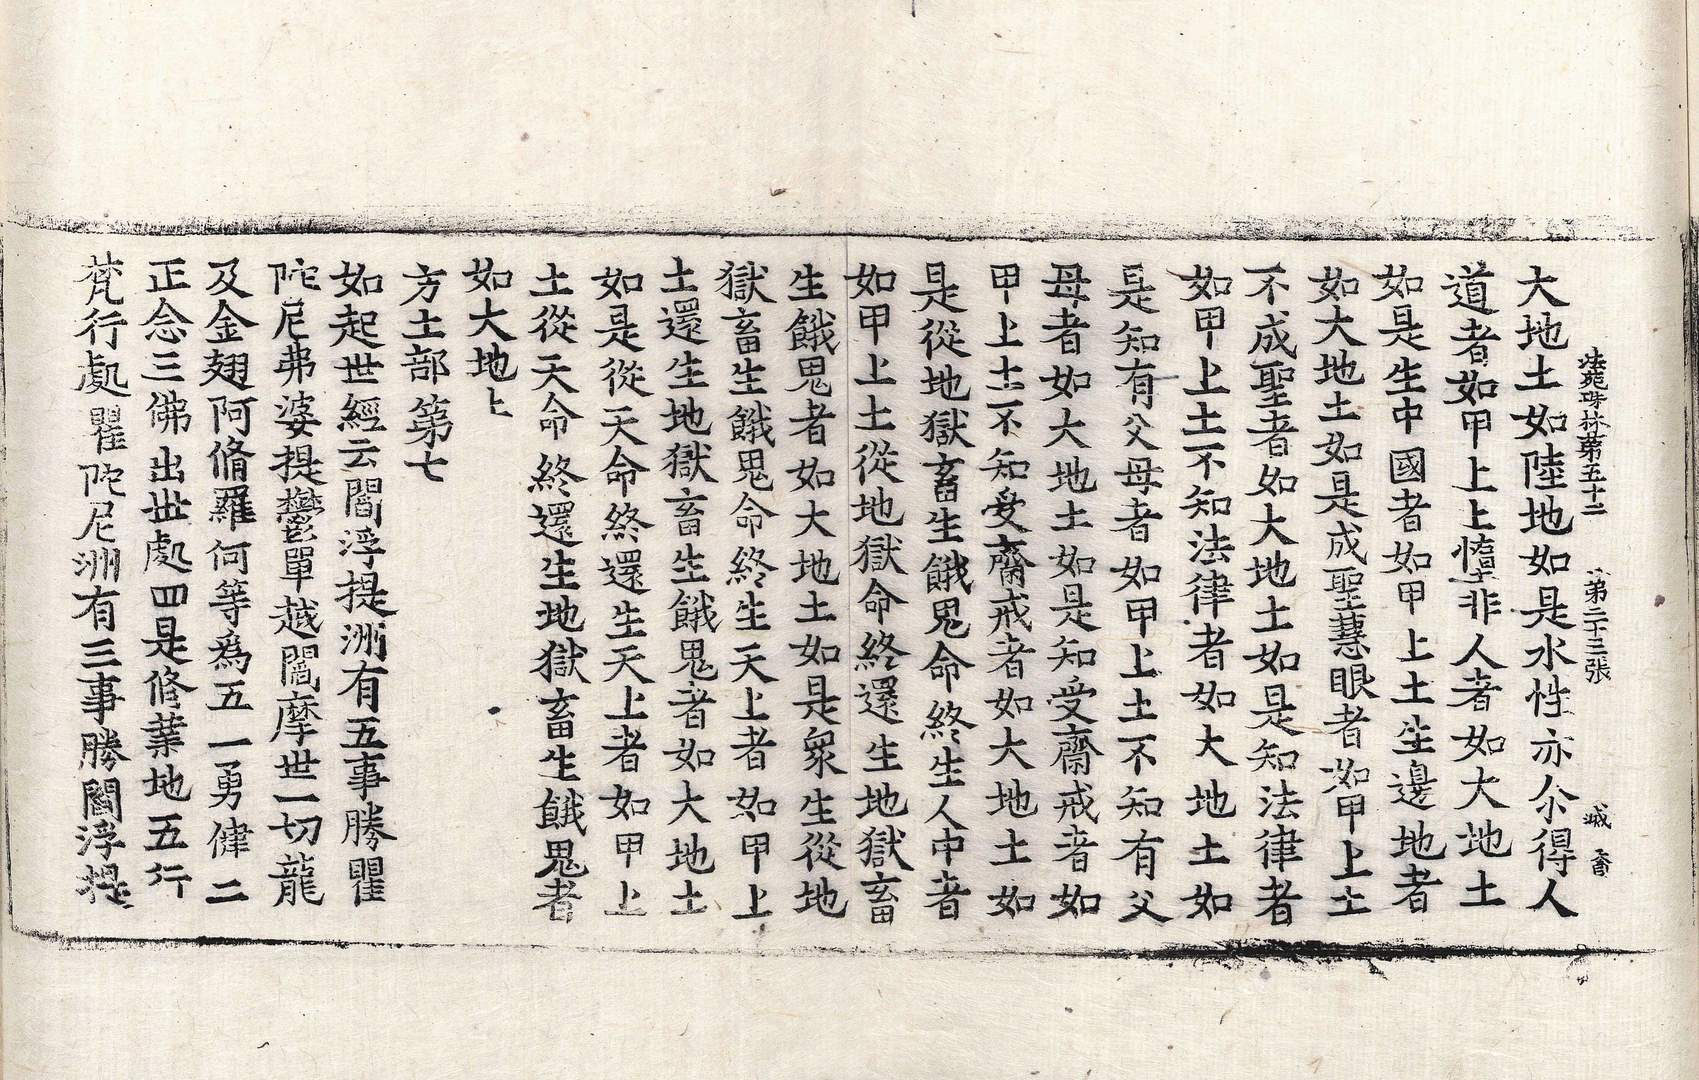 法苑珠林第五十二 第二十三張
大地土如陸地如是水性亦尒得人
道者如甲上上墮非人者如大地土
如是生中國者如甲上土生邊地者
如大地土如是成聖慧眼者如甲上土
不成聖者如大地土如是知法律者
如甲上土不知法律者如大地土如
是知有父母者如甲上土不知有父
母者如大地土如是知受齋戒者如
甲上土不知受齋戒者如大地土如
是從地獄畜生餓鬼命終生人中者
如甲上土從地獄命終還生地獄畜
生餓鬼者如大地土如是衆生從地
獄畜生餓鬼命終生天上者如甲上
土還生地獄畜生餓鬼者如大地土
如是從天命終還生天上者如甲上
土從天命終還生地獄畜生餓鬼者
如大地上
方土部第七
如起世經云閻浮提洲有五事勝瞿
陀尼弗婆提鬱單越閻摩世一切龍
及金翅阿脩羅何等爲五一勇健二
正念三佛出世處四是修業地五行
梵行處瞿陀尼洲有三事勝閻浮提